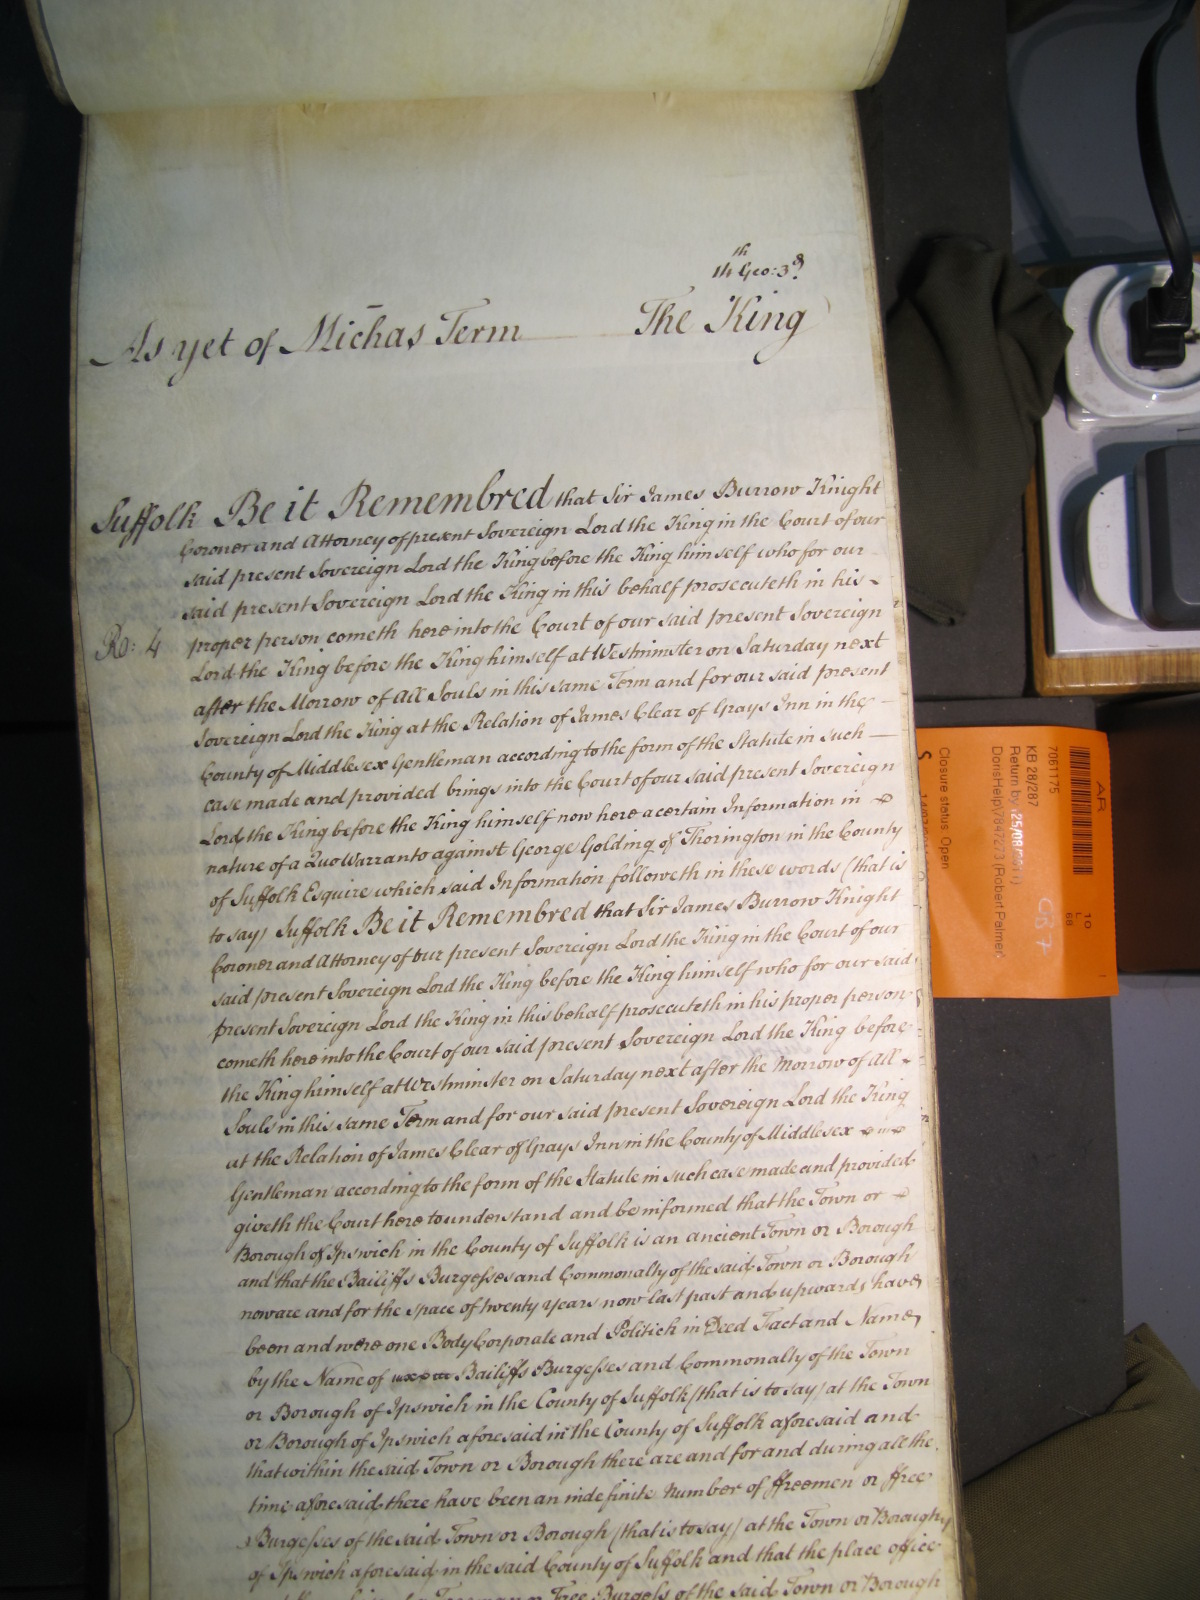 14th Geo: 3d.
As yet of Michas Term The King
Suffolk Be it Remembred that Sir James Burrow Knight
Coroner and Attorney of present Sovereign Lord the King in the Court of our
said present Sovereign Lord the King before the King himself who for our
said present Sovereign Lord the King in this behalf prosecuteth in his
Ro: 4 proper person cometh here into the Court of our said present Sovereign
Lord the King before the King himself at Westminster on Saturday next
after the Morrow of All Souls in this same Term and for our said present
Sovereign Lord the King at the Relation of James Clear of Grays Inn in the
County of Middlesex Gentleman according to the form of the Statute in such
case made and provided brings into the Court of our said present Sovereign
Lord the King before the King himself now here a certain Information in
nature of a Quo Warranto against George Golding of Thorington in the County
of Suffolk Esquire which said Information followeth in these words (that is
to say) Suffolk Be it Remembred that Sir James Burrow Knight
Coroner and Attorney of our present Sovereign Lord the King in the Court of our
said present Sovereign Lord the King before the King himself who for our said
present Sovereign Lord the King in this behalf prosecuteth in his proper person
cometh here into the Court of our said present Sovereign Lord the King before
the King himself at Westminster on Saturday next after the Morrow of All
Souls in this same Term and for our said present Sovereign Lord the King
at the Relation of James Clear of Grays Inn in the County of Middlesex
Gentleman according to the form of the Statute in such case made and provided
giveth the Court here to understand and be informed that the Town or
Borough of Ipswich in the County of Suffolk is an ancient Town or Borough
and that the Bailiffs Burgesses and Commonalty of the said Town or Borough
now are and for the space of twenty years now last past and upwards have
been and were one Body Corporate and Politick in Deed Fact and Name
by the Name of Bailiffs Burgesses and Commonalty of the Town
or Borough of Ipswich in the County of Suffolk (that is to say) at the Town
or Borough of Ipswich aforesaid in the County of Suffolk aforesaid and
that within the said Town or Borough there are and for and during all the
time aforesaid there have been an indefinite Number of ffreemen or ffree
Burgesses of the said Town or Borough (that is to say) at the Town or Borough
of Ipswich aforesaid in the said County of Suffolk and that the place office
Freeman or Free Burgess of the said Town or Borough
AR
7061175
KB 28/287
Return by (25/08/2011)
DorisHelp/7847273 (Robert Palmer)
Closure status: Open
10
L
68